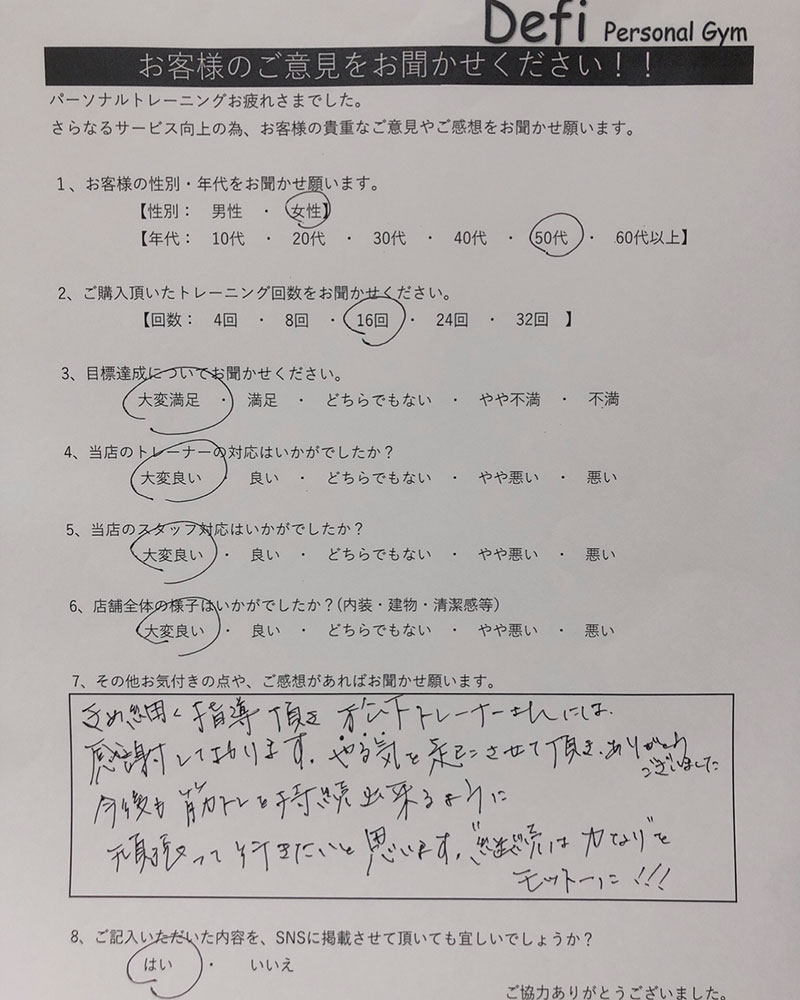 Defi Personal Gym
お客様のご意見をお聞かせください！！
パーソナルトレーニングお疲れさまでした。
さらなるサービス向上の為、お客様の貴重なご意見やご感想をお聞かせ願います。
1、お客様の性別・年代をお聞かせ願います。
【性別： 男性 ・ 女性】
【年代： 10代 ・ 20代 ・ 30代 ・ 40代 ・ 50代 ・ 60代以上】
2、ご購入頂いたトレーニング回数をお聞かせください。
【回数： 4回 ・ 8回 ・ 16回 ・ 24回 ・ 32回 】
3、目標達成についてお聞かせください。
大変満足 ・ 満足 ・ どちらでもない ・ やや不満 ・ 不満
4、当店のトレーナーの対応はいかがでしたか？
大変良い ・ 良い ・ どちらでもない ・ やや悪い ・ 悪い
5、当店のスタッフ対応はいかがでしたか？
大変良い ・ 良い ・ どちらでもない ・ やや悪い ・ 悪い
6、店舗全体の様子はいかがでしたか？(内装・建物・清潔感等)
大変良い ・ 良い ・ どちらでもない ・ やや悪い ・ 悪い
7、その他お気付きの点や、ご感想があればお聞かせ願います。
きめ細く指導頂き 下トレーナーさんには、
感謝しております。やる気を起こさせて頂き、ありがとう
ございました
今後も筋トレを持続出来るように
頑張って行きたいと思います。"継続は力なり"を
モットーに!!!
8、ご記入いただいた内容を、SNSに掲載させて頂いても宜しいでしょうか？
はい ・ いいえ
ご協力ありがとうございました。